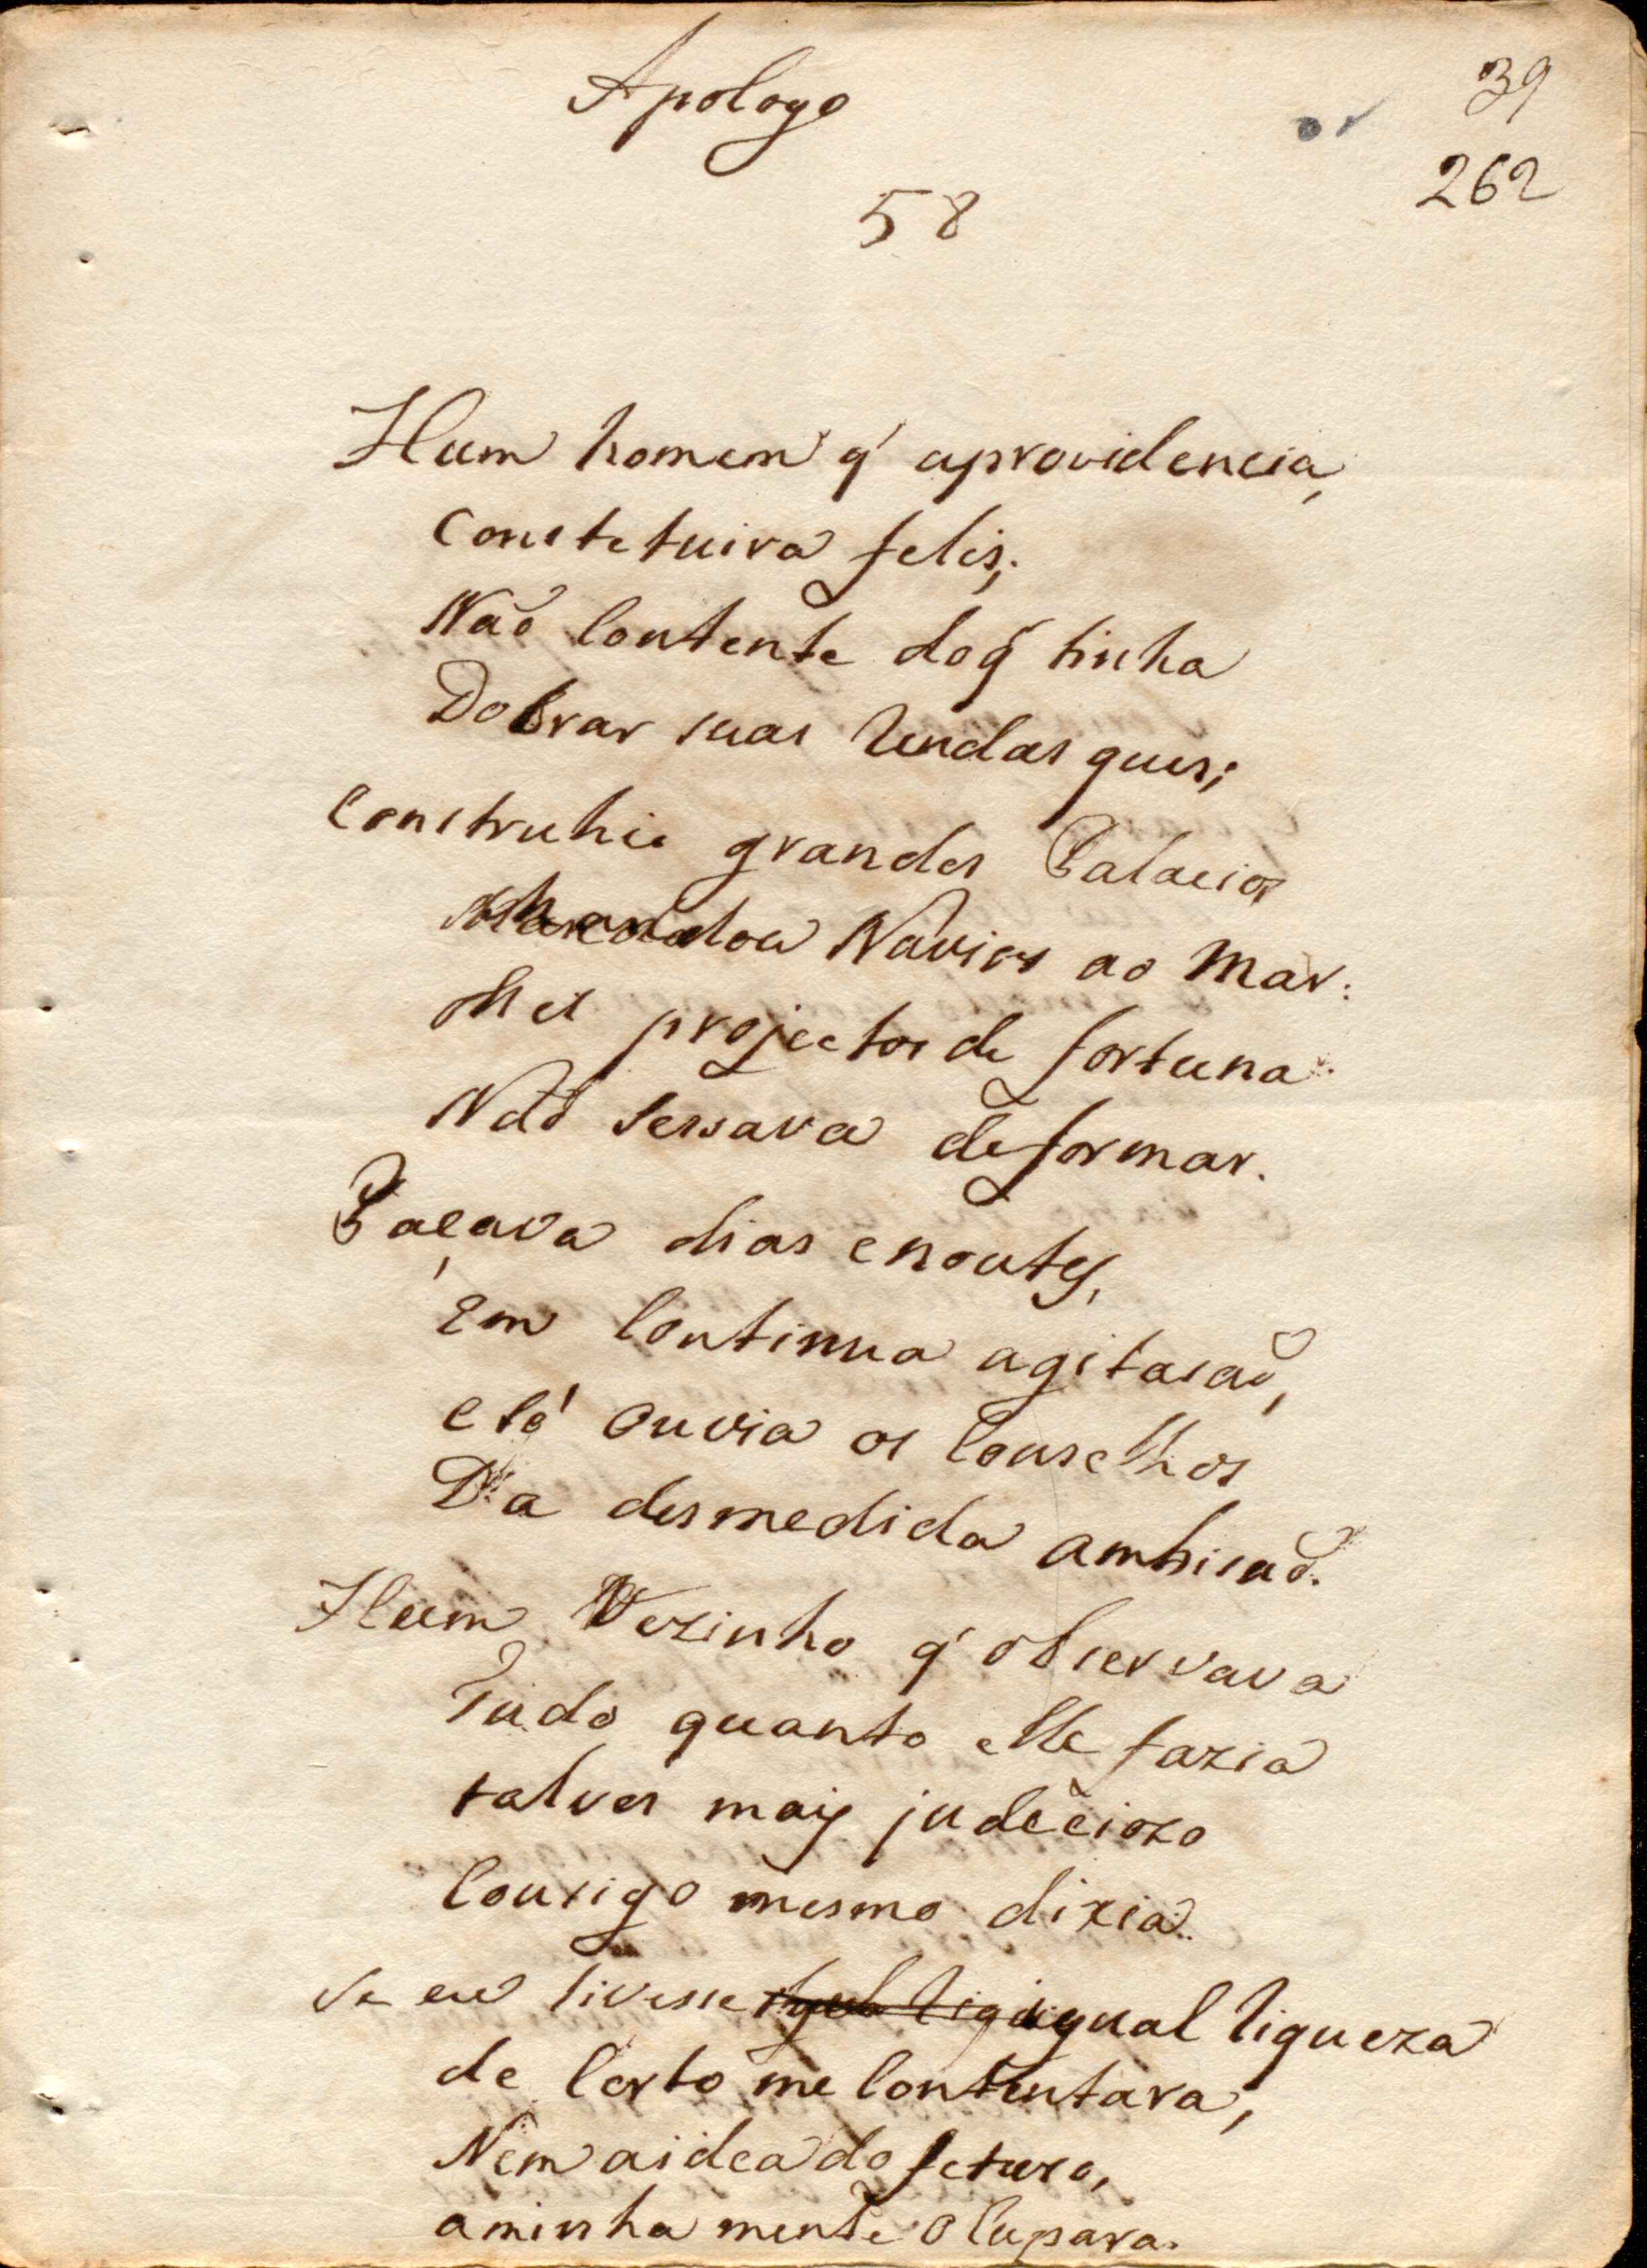 Apologo
39
262
58
Hum homem q' aprovidencia,
Constetuira felis;
Naõ Contente doq' tinha
Dobrar suas Rendas quis;
Construhio grandes Palacios
Mandou Navios ao Mar:
Mil projectos de fortuna
Naõ Cessava deformar.
Paçava dias enoutes,
Em Continua agitasaõ,
e só ouvia os Conselhos
Da desmedida ambisaõ.
Hum Vezinho q' observava
Tudo quanto elle fazia
talves mais judeciozo
Comsigo mesmo dizia.
Se eu tivesse igual Riqueza
de Certo me Contentara,
Nem aidea do feturo,
aminha mente OCupara.